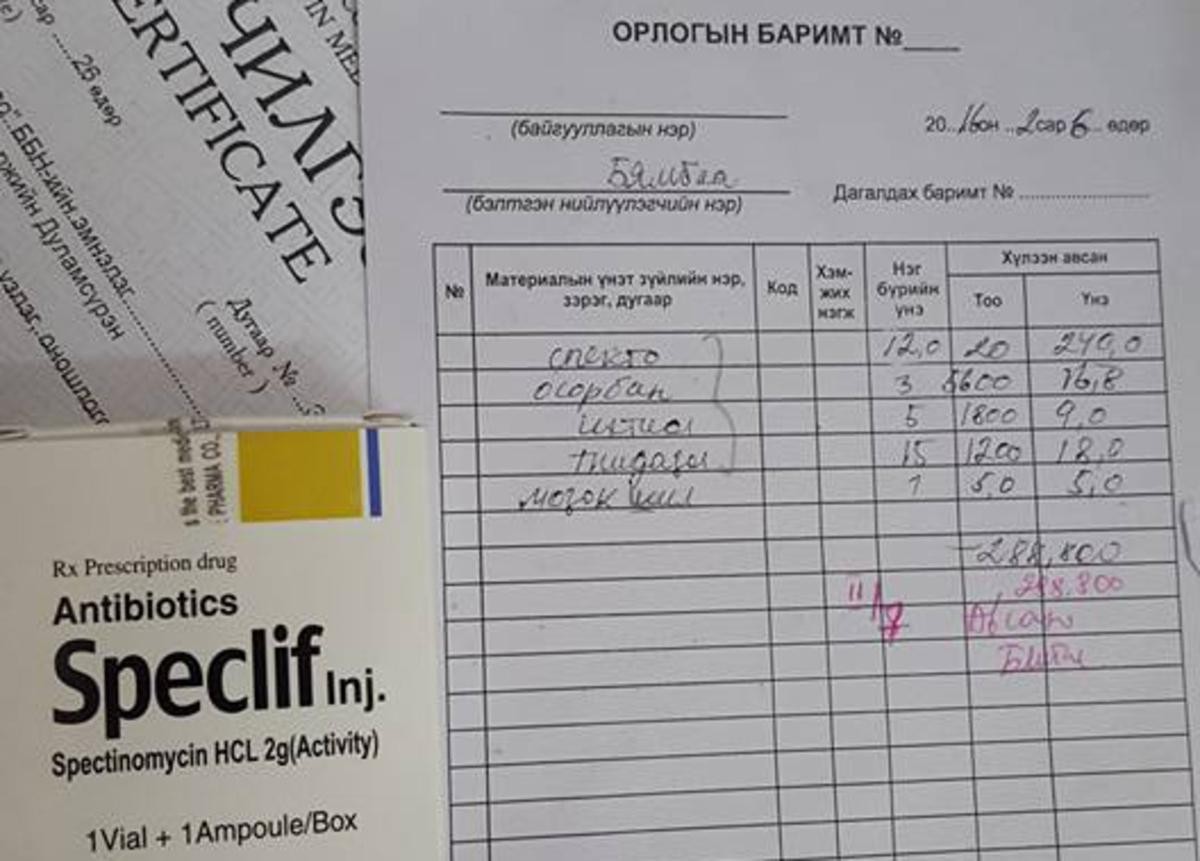 сар ......26 өдөр
ЧИЛГЭ
ERTIFICATE
ББН-ийн эмнэлэг
Дуламсүрэн
үздэг, оношлог
Дугаар №
( number )
ОРЛОГЫН БАРИМТ №____
(байгууллагын нэр)
20..16он ..2сар 6.. өдөр
Бямбаа
(бэлтгэн нийлүүлэгчийн нэр)
Дагалдах баримт № ........................
№ Материалын үнэт зүйлийн нэр, зэрэг, дугаар Код Хэм-жих нэгж Нэг бүрийн үнэ Хүлээн авсан
Тоо Үнэ
спекто 12,0 20 240,0
осорбан 3 5600 16,8
ихтиол 5 1800 9,0
15 1200 18,0
мозок шил 1 5,0 5,0
288,800
288.800
II/7 Авсан
s the best medicin
PHARMA CO.,
Rx Prescription drug
Antibiotics
Speclif Inj.
Spectinomycin HCL 2g(Activity)
1Vial + 1Ampoule/Box